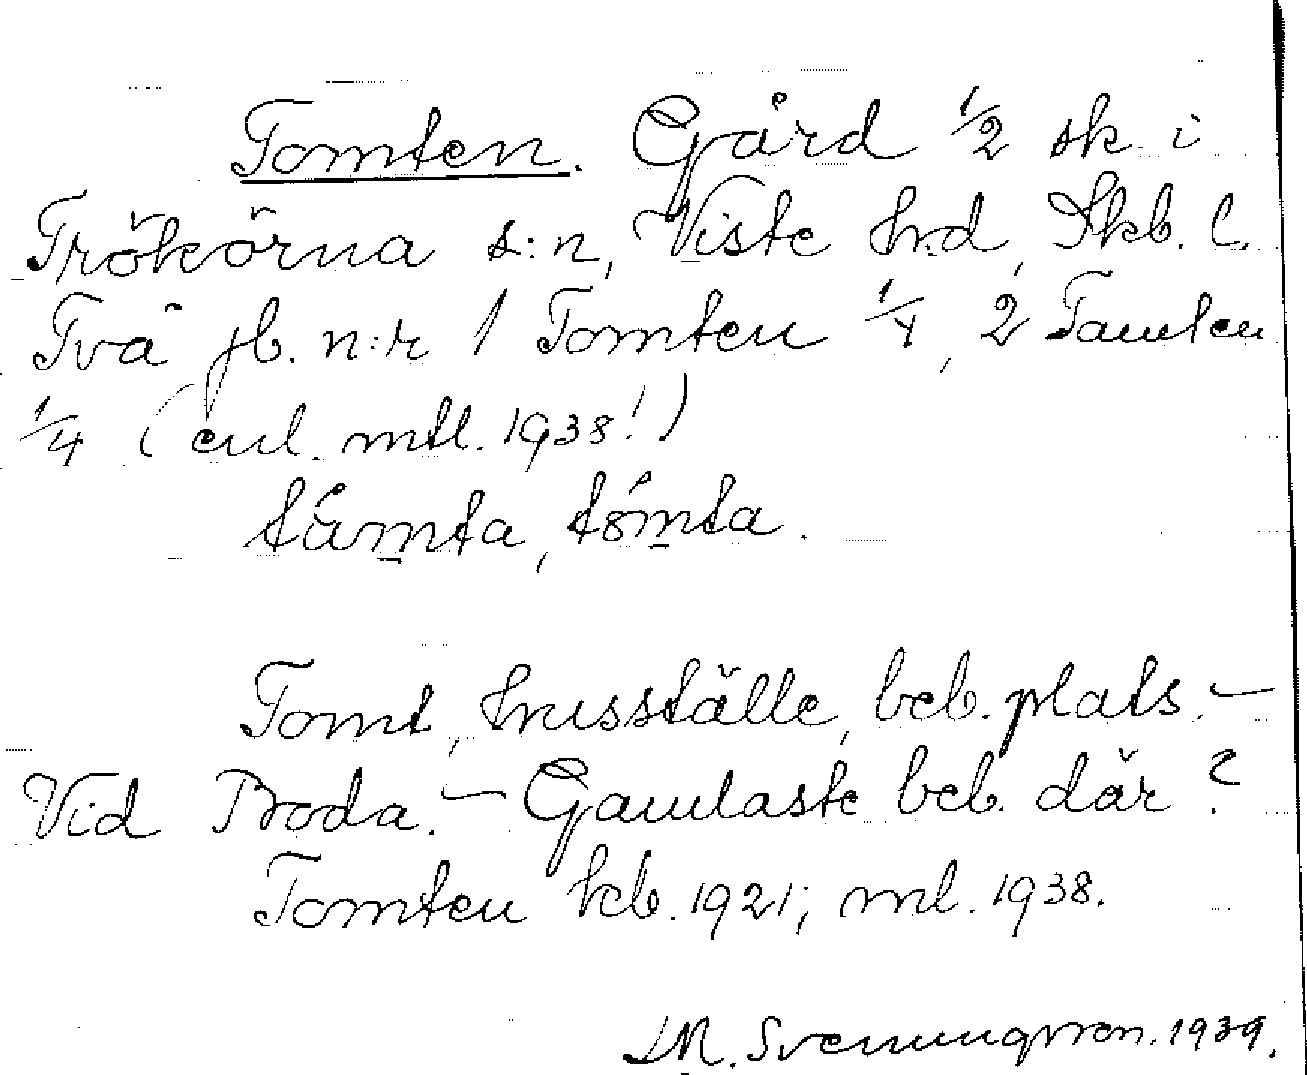 Tomten. Gård 1/2 sk i
Trökörna s:n, Viste hrd, Skb. l.
Två jb. n:r 1 Tomten 1/4, 2 Tomten
1/4 (enl. mtl. 1938!)
tåmta, tómta.
Tomt, husställe, beb. plats. –
Vid Broda. – Gamlaste beb. där?
Tomten kb. 1921; ml. 1938.
M. Svenungsson. 1939.